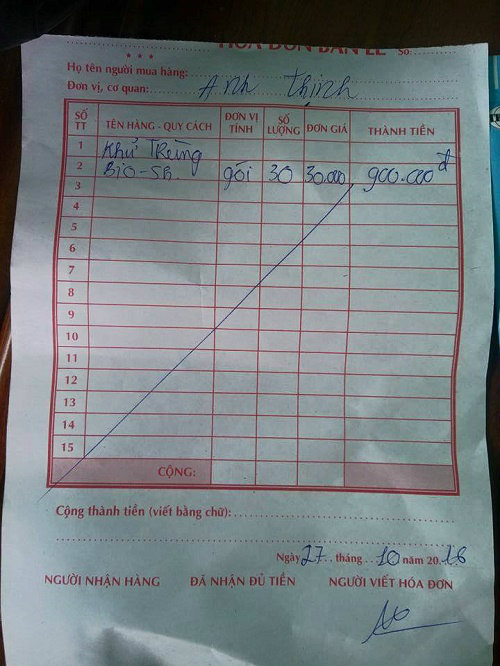 HÓA ĐƠN BÁN LẺ Số:
Họ tên người mua hàng:
Đơn vị, cơ quan: Anh Thịnh
SỐ TT TÊN HÀNG - QUY CÁCH ĐƠN VỊ TÍNH SỐ LƯỢNG ĐƠN GIÁ THÀNH TIỀN
1 Khử Trùng
2 BiO-SB gói 30 30.000 900.000đ
3
4
5
6
7
8
9
10
11
12
13
14
15
CỘNG:
Cộng thành tiền (viết bằng chữ):
Ngày 27 tháng 10 năm 2016
NGƯỜI NHẬN HÀNG ĐÃ NHẬN ĐỦ TIỀN NGƯỜI VIẾT HÓA ĐƠN